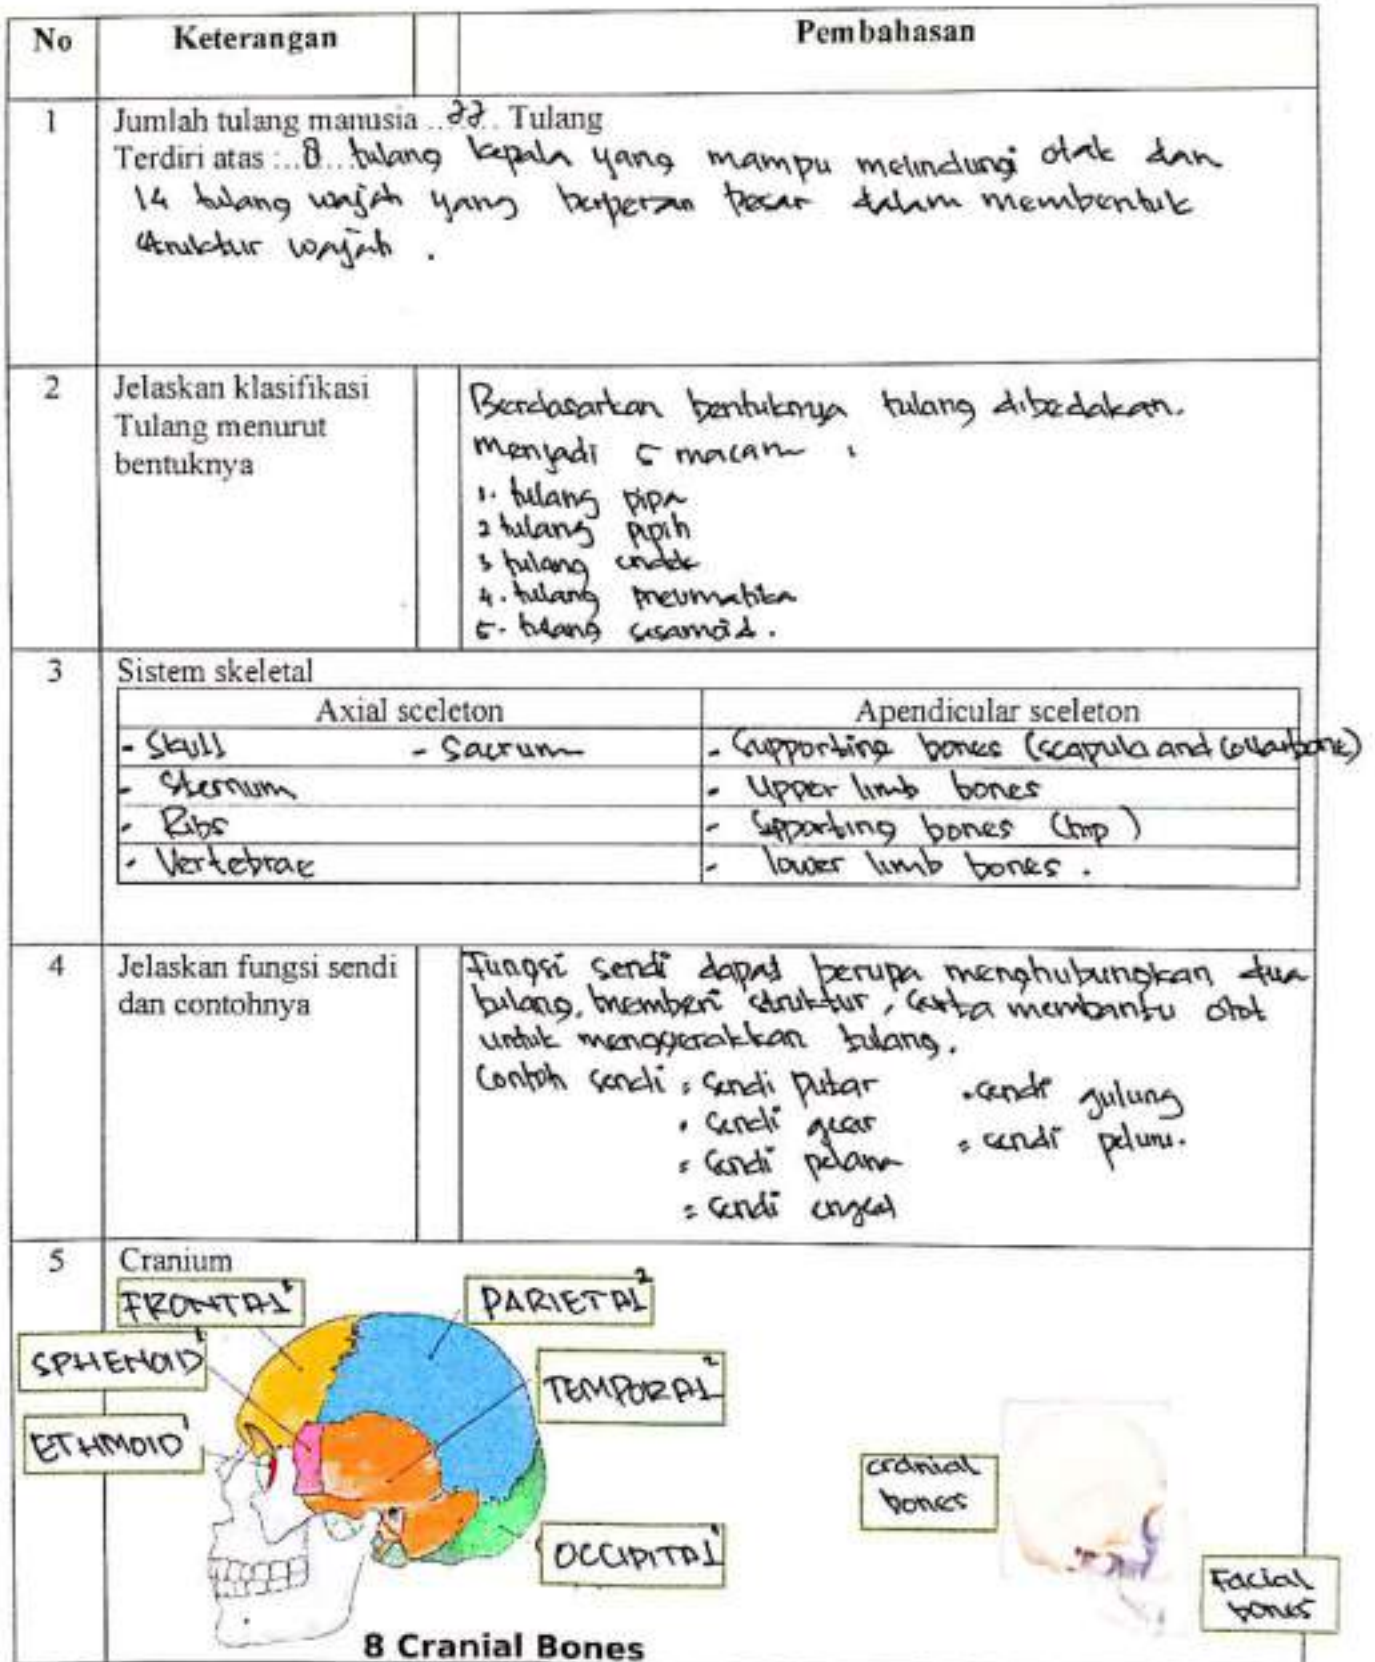 No Keterangan Pembahasan
1 Jumlah tulang manusia ..22.. Tulang
Terdiri atas :..8...tulang kepala yang mampu melindungi otak dan
14 tulang wajah yang berperan besar dalam membentuk
struktur wajah .
2 Jelaskan klasifikasi
Tulang menurut
bentuknya
Berdasarkan bentuknya tulang dibedakan.
menjadi 5 macam :
1. tulang pipa
2 tulang pipih
3 tulang
4. tulang pneumatika
5. tulang sesamoid.
3 Sistem skeletal
Axial sceleton Apendicular sceleton
- Skull - Sacrum - Supporting bones (scapula and collarbone)
- Sternum - Upper limb bones
- Ribs - Supporting bones (hip)
- Vertebrae - lower limb bones .
4 Jelaskan fungsi sendi
dan contohnya
Fungsi sendi dapat berupa menghubungkan dua
tulang, memberi struktur, serta membantu otot
untuk menggerakkan tulang.
Contoh sendi : Sendi putar
• Sendi geser
= Sendi pelana
= sendi engsel
• sendi gulung
= sendi peluru.
5 Cranium
FRONTAL 1
PARIETAL 2
SPHENOID 1
TEMPORAL 2
ETHMOID 1
OCCIPITAL 1
cranial
bones
Facial
bones
8 Cranial Bones